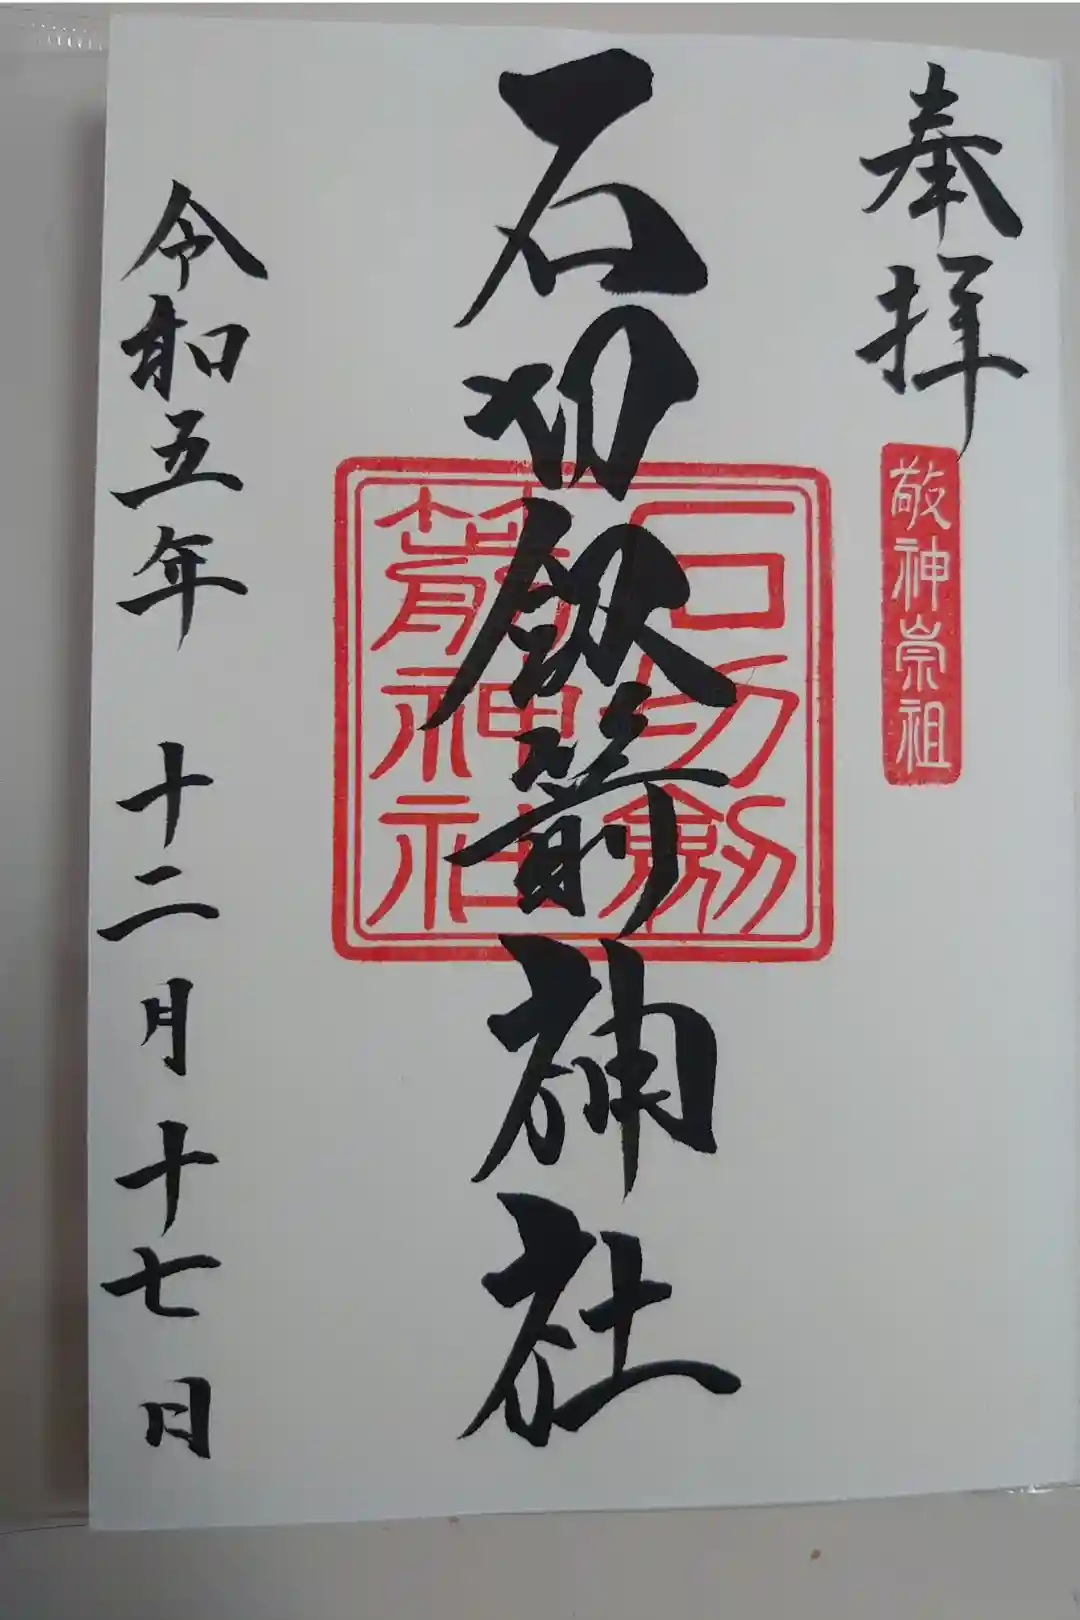 奉拝
敬神崇祖
石切劔箭神社
石切劔
箭神社
令和五年 十二月十七日